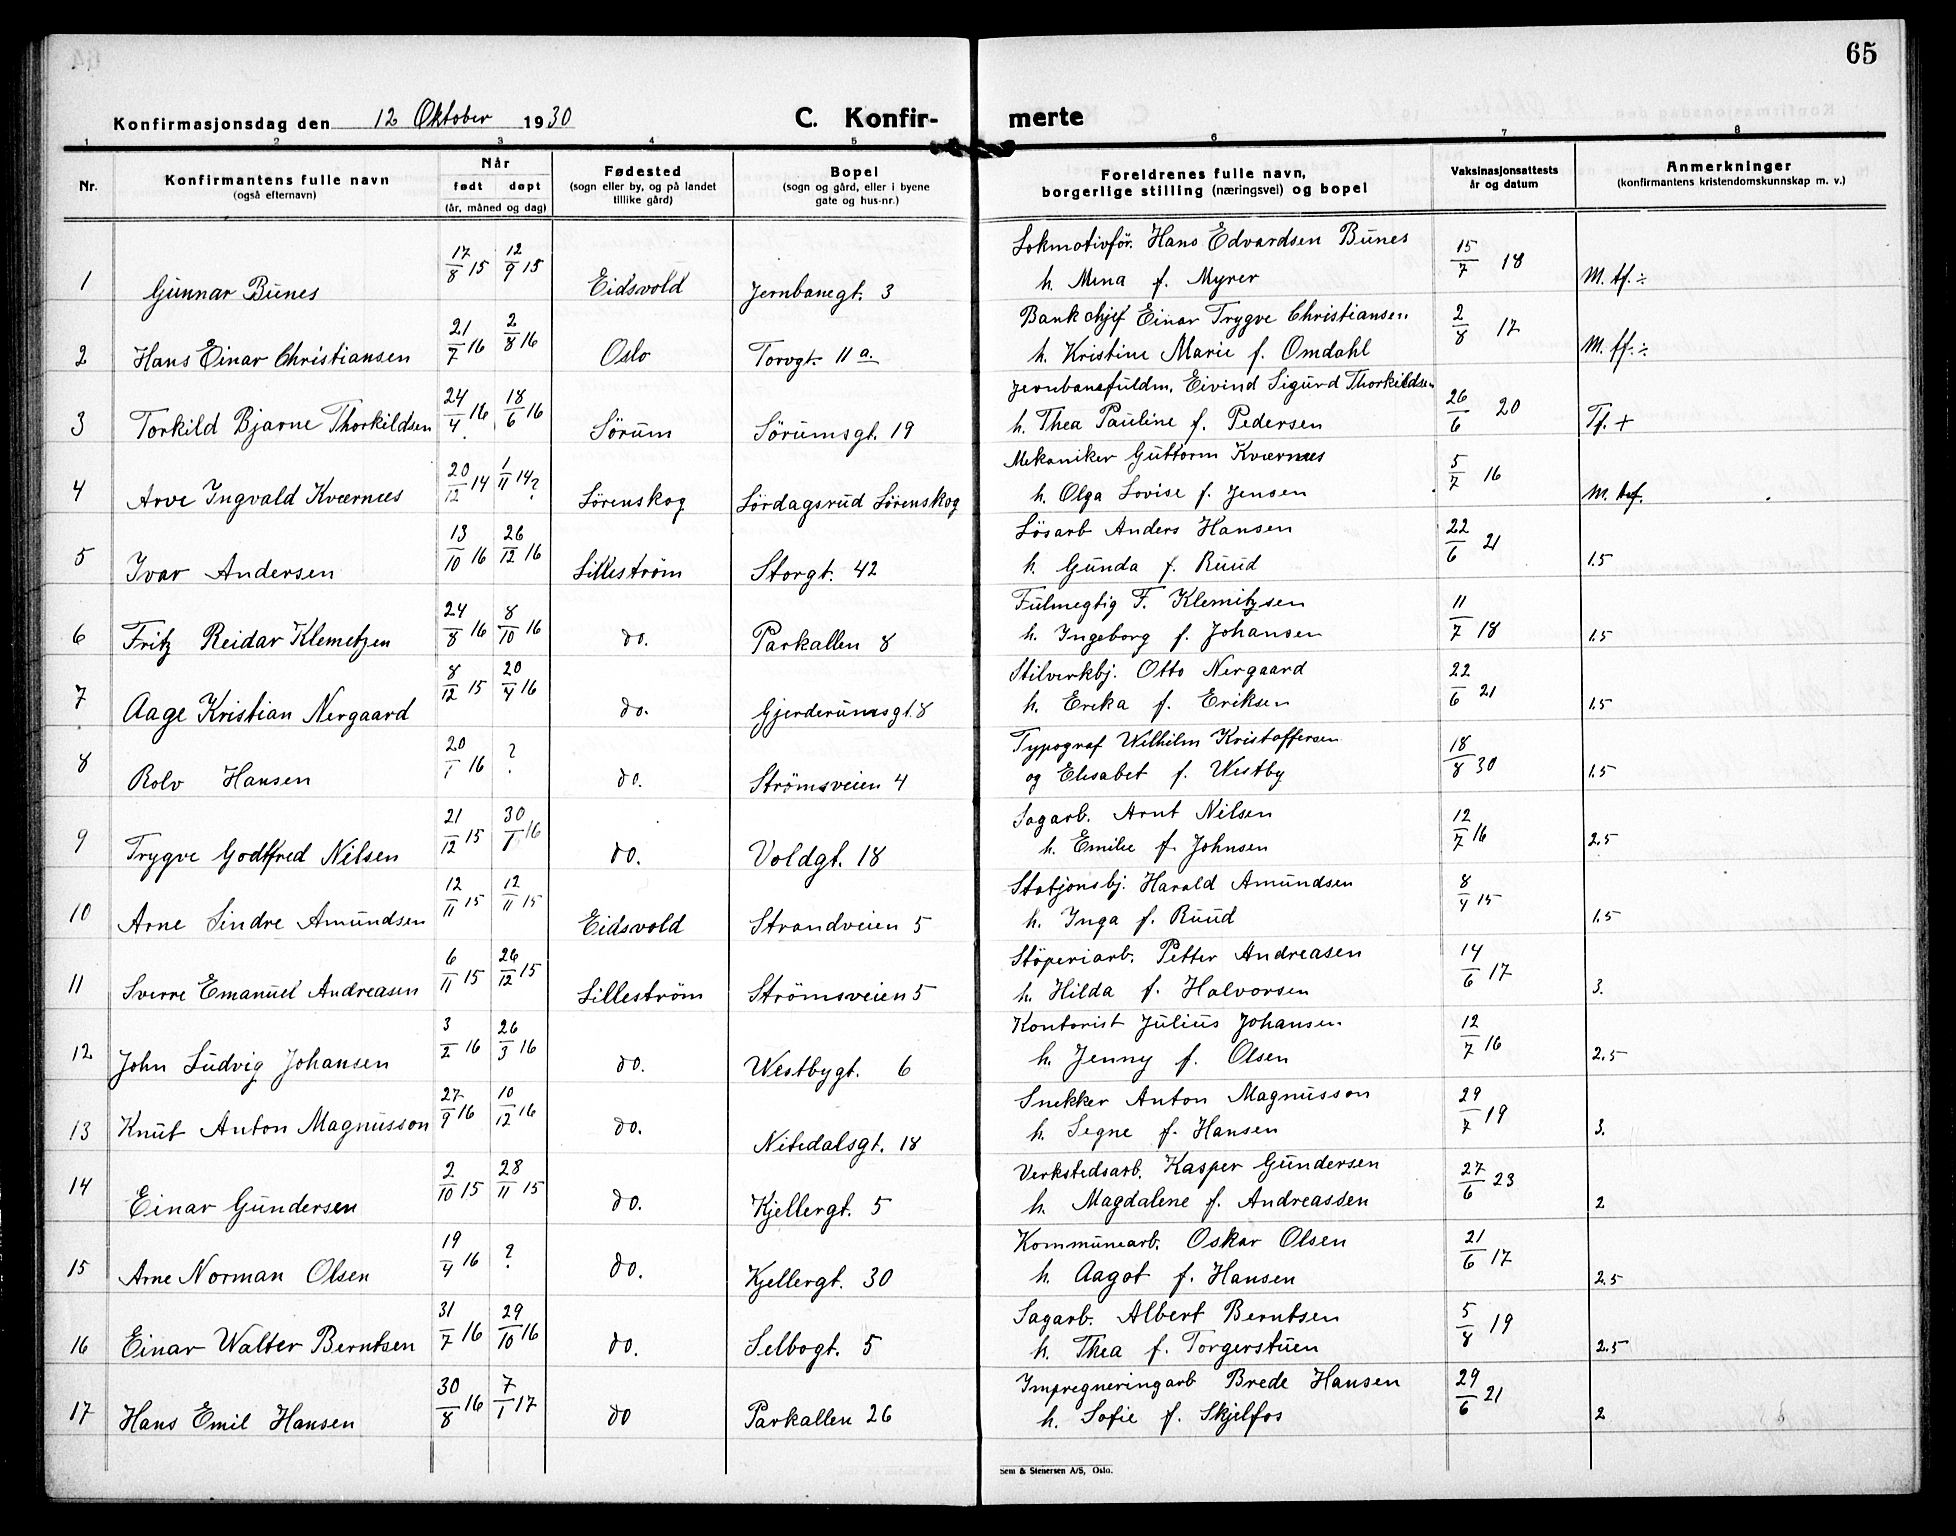 65
Konfirmasjonsdag den 12 Oktober 1930 C. Konfir- merte
1 2 3 4 5 6 7 8
Nr. Konfirmantens fulle navn (også efternavn) Når født døpt (år, måned og dag) Fødested (sogn eller by, og på landet tillike gård) Bopel (sogn og gård, eller i byene gate og hus-nr.) Foreldrenes fulle navn, borgerlige stilling (næringsvei) og bopel Vaksinasjonsattests år og datum Anmerkninger (konfirmantens kristendomskunnskap m. v.)
Lokmotivför. Hans Edvardsen Bunes
1 Gunnar Bunes 17/8 15 12/9 15 Eidsvold Jernbanegt. 3 h. Mena f. Myrer 15/7 18 M. tf. ÷
Bankchjef Einar Trygve Christiansen
2 Hans Einar Christiansen 21/7 16 2/8 16 Oslo Torvgt. 11 a. h. Kristine Marie f. Omdahl 2/8 17 M. tf. ÷
Jernbanefuldm. Eivind Sigurd Thorkildsen
3 Torkild Bjarne Thorkildsen 24/4 16 18/6 16 Sørum Sørumsgt. 19 h. Thea Pauline f. Pedersen 26/6 20 Tf. +
Mekaniker Guttorm Kværnes
4 Arve Ingvald Kværnes 20/12 14 1/11 14? Sørenskog Lørdagsrud Lørenskog h. Olga Lovise f. Jensen 5/7 16 M.
Løsarb Anders Hansen
5 Ivar Andersen 13/10 16 26/12 16 Lilleström Storgt. 42 h. Gunda f. Ruud 22/6 21 1.5
Fulmegtig F. Klemitzsen
6 Fritz Reidar Klemetzen 24/8 16 8/10 16 do. Parkallen 8 h. Ingeborg f. Johansen 11/7 18 1.5
Stilverkbj. Otto Nergaard
7 Aage Kristian Nergaard 8/12 15 20/4 16 do. Gjerderumsgt. 8 h. Erika f. Eriksen 22/6 21 1.5
Typograf Wilhilm Kristoffersen
8 Rolv Hansen 20/1 16 ? do. Strömsveien 4 og Elisabet f. Westby 18/8 30 1.5
Sagarb. Arnt Nilsen
9 Trygve Godtfred Nilsen 21/12 15 30/1 16 do. Voldgt. 18 h. Emilie f. Johnsen 12/7 16 2.5
Stotjonsbj. Harald Amundsen
10 Arne Sindre Amundsen 12/11 15 12/11 15 Eidsvold Strandveien 5 h. Inga f. Ruud 8/4 15 1.5
Stöperiarb. Petter Andreasen
11 Sverre Emanuel Andreasen 6/11 15 26/12 15 Lilleström Strömsveien 5 h. Hilda f. Halvorsen 14/6 17 3.
Kontorist Julius Johansen
12 John Ludvig Johansen 3/2 16 26/3 16 do. Westbygt. 6 h. Jenny f. Olsen 12/7 16 2.5
Snekker Anton Magnusson
13 Knut Anton Magnusson 27/9 16 10/12 16 do. Nitedalsgt. 18 h. Segne f. Hansen 29/7 19 3.
Verkstedsarb. Kasper Gundersen
14 Einar Gundersen 2/10 15 28/11 15 do. Kjellergt. 5 h. Magdalene f. Andreassen 27/6 23 2
Kommunearb. Oskar Olsen
15 Arne Norman Olsen 19/4 16 ? do. Kjellergt. 30 h. Aagot f. Hansen 21/6 17 2.5
Sagarb. Albert Berntsen
16 Einar Walter Berntsen 31/7 16 29/10 16 do. Selbogt. 5 h. Thea f. Torgerstuen 5/8 19 2.5
Impregneringarb Brede Hansen
17 Hans Emil Hansen 30/8 16 7/1 17 do Parkallen 26 h. Sofie f. Skjelfos 29/6 21 2
Sem & Stenersen A/S, Oslo.